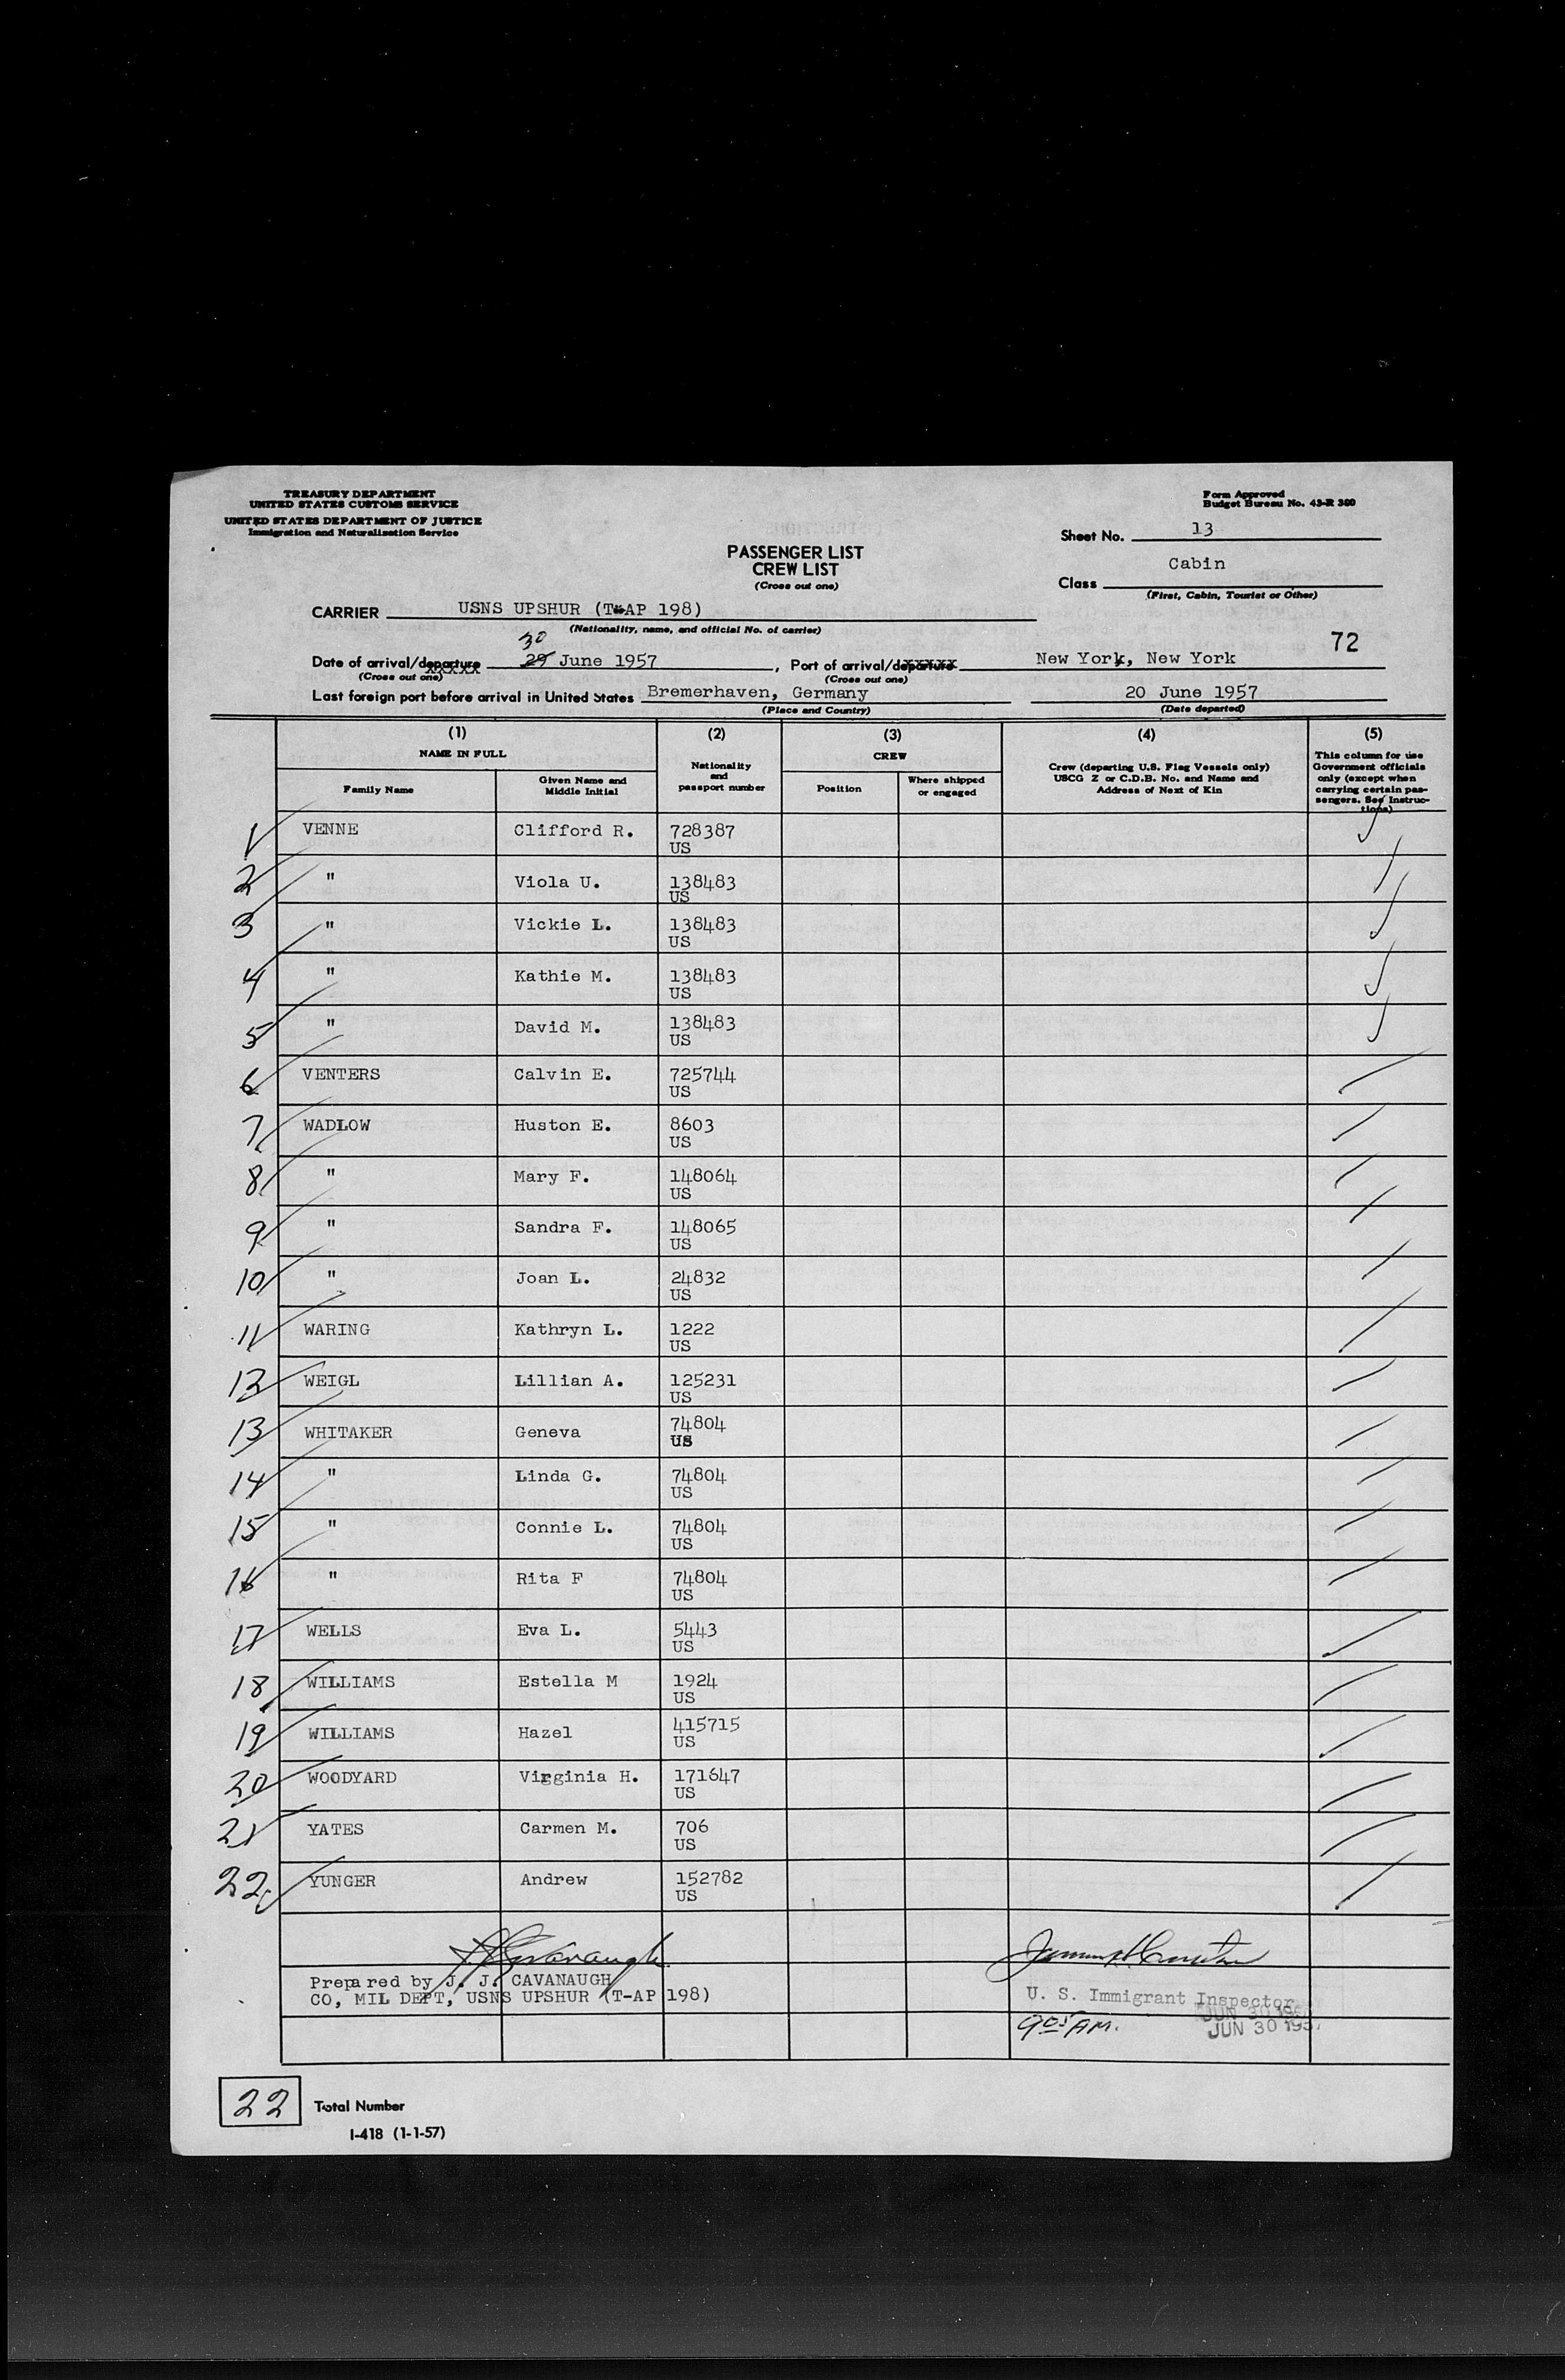 TREASURY DEPARTMENT
UNITED STATES CUSTOMS SERVICE
UNITED STATES DEPARTMENT OF JUSTICE
Immigration and Naturalization Service
Form Approved
Budget Bureau No. 43-R 380
Sheet No. 13
PASSENGER LIST
CREW LIST
(Cross out one)
Class Cabin
(First, Cabin, Tourist or Other)
CARRIER USNS UPSHUR (T-AP 198)
(Nationality, name, and official No. of carrier)
30
72
Date of arrival/departure 29 June 1957, Port of arrival/departure New York, New York
(Cross out one) (Cross out one)
Last foreign port before arrival in United States Bremerhaven, Germany 20 June 1957
(Place and Country) (Date departed)
(1) (2) (3) (4) (5)
NAME IN FULL
Family Name
Given Name and
Middle Initial
Nationality
and
passport number
CREW
Position
Where shipped
or engaged
Crew (departing U.S. Flag Vessels only)
USCG Z or C.D.B. No. and Name and
Address of Next of Kin
This column for use
Government officials
only (except when
carrying certain pas-
sengers. See Instruc-
tions)
1 VENNE Clifford R. 728387
US
2 " Viola U. 138483
US
3 " Vickie L. 138483
US
4 " Kathie M. 138483
US
5 " David M. 138483
US
6 VENTERS Calvin E. 725744
US
7 WADLOW Huston E. 8603
US
8 " Mary F. 148064
US
9 " Sandra F. 148065
US
10 " Joan L. 24832
US
11 WARING Kathryn L. 1222
US
12 WEIGL Lillian A. 125231
US
13 WHITAKER Geneva 74804
US
14 " Linda G. 74804
US
15 " Connie L. 74804
US
16 " Rita F 74804
US
17 WELLS Eva L. 5443
US
18 WILLIAMS Estella M 1924
US
19 WILLIAMS Hazel 415715
US
20 WOODYARD Virginia H. 171647
US
21 YATES Carmen M. 706
US
22 YUNGER Andrew 152782
US
Prepared by J. J. CAVANAUGH
CO, MIL DEPT, USNS UPSHUR (T-AP 198)
U. S. Immigrant Inspector
JUN 30 195
9 05 AM. JUN 30 195
22 Total Number
I-418 (1-1-57)